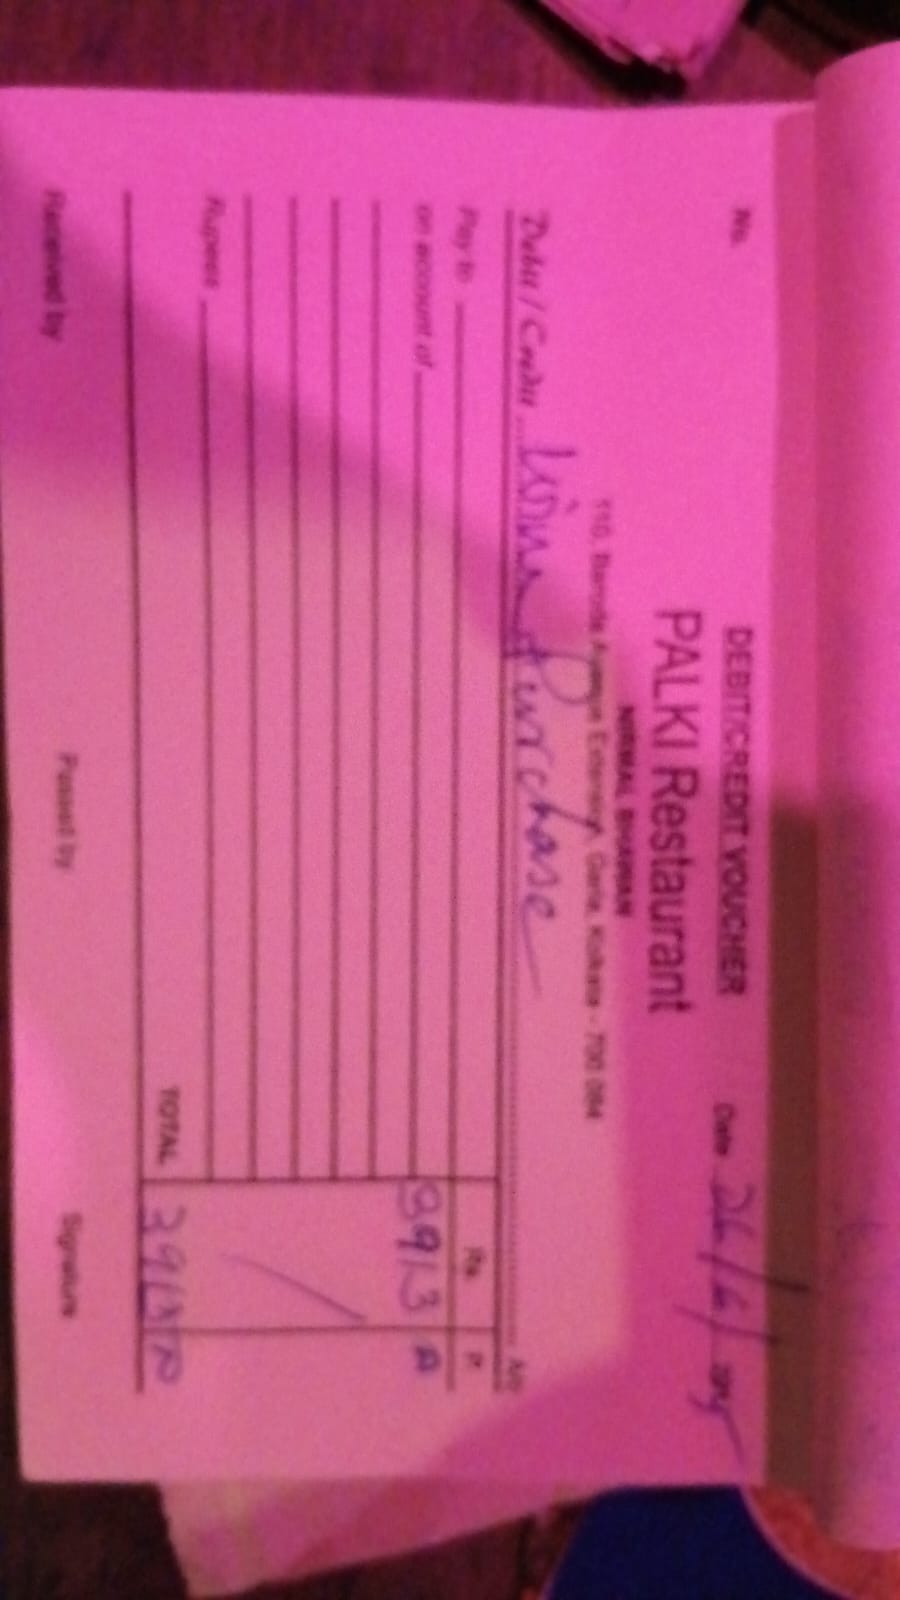 DEBIT/CREDIT VOUCHER
No.
Date 26/6/
PALKI Restaurant
NIRMAL BHAWAN
110, Baroda Avenue Extension, Garia, Kolkata - 700 084
Debit / Credit Purchase A/c
Pay to Rs. P.
on account of 3913
Rupees
TOTAL 3913
Received by Passed by Signature